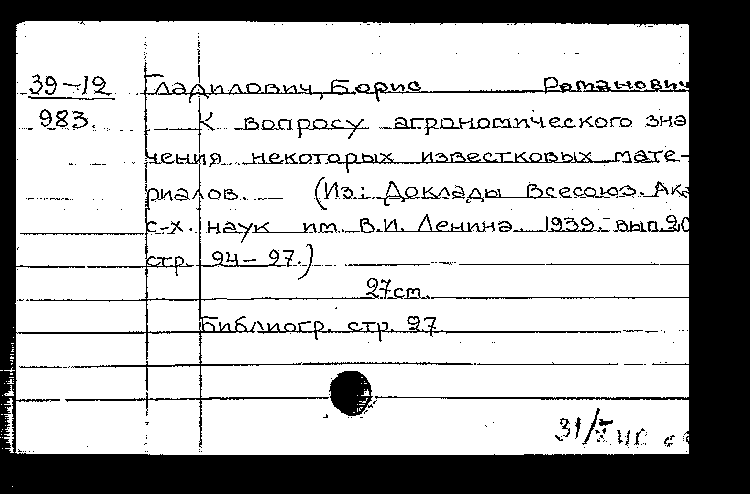 39-12 Гладилович, Борис Романович
983. К вопросу агрономического зна
чения некоторых известковых мате-
риалов. (Из: Доклады Всесоюз. Ака
с-х. наук им. В.И. Ленина. 1939. вып. 20
стр. 24-27.)
27 cm.
Библиогр. стр. 27
31/X